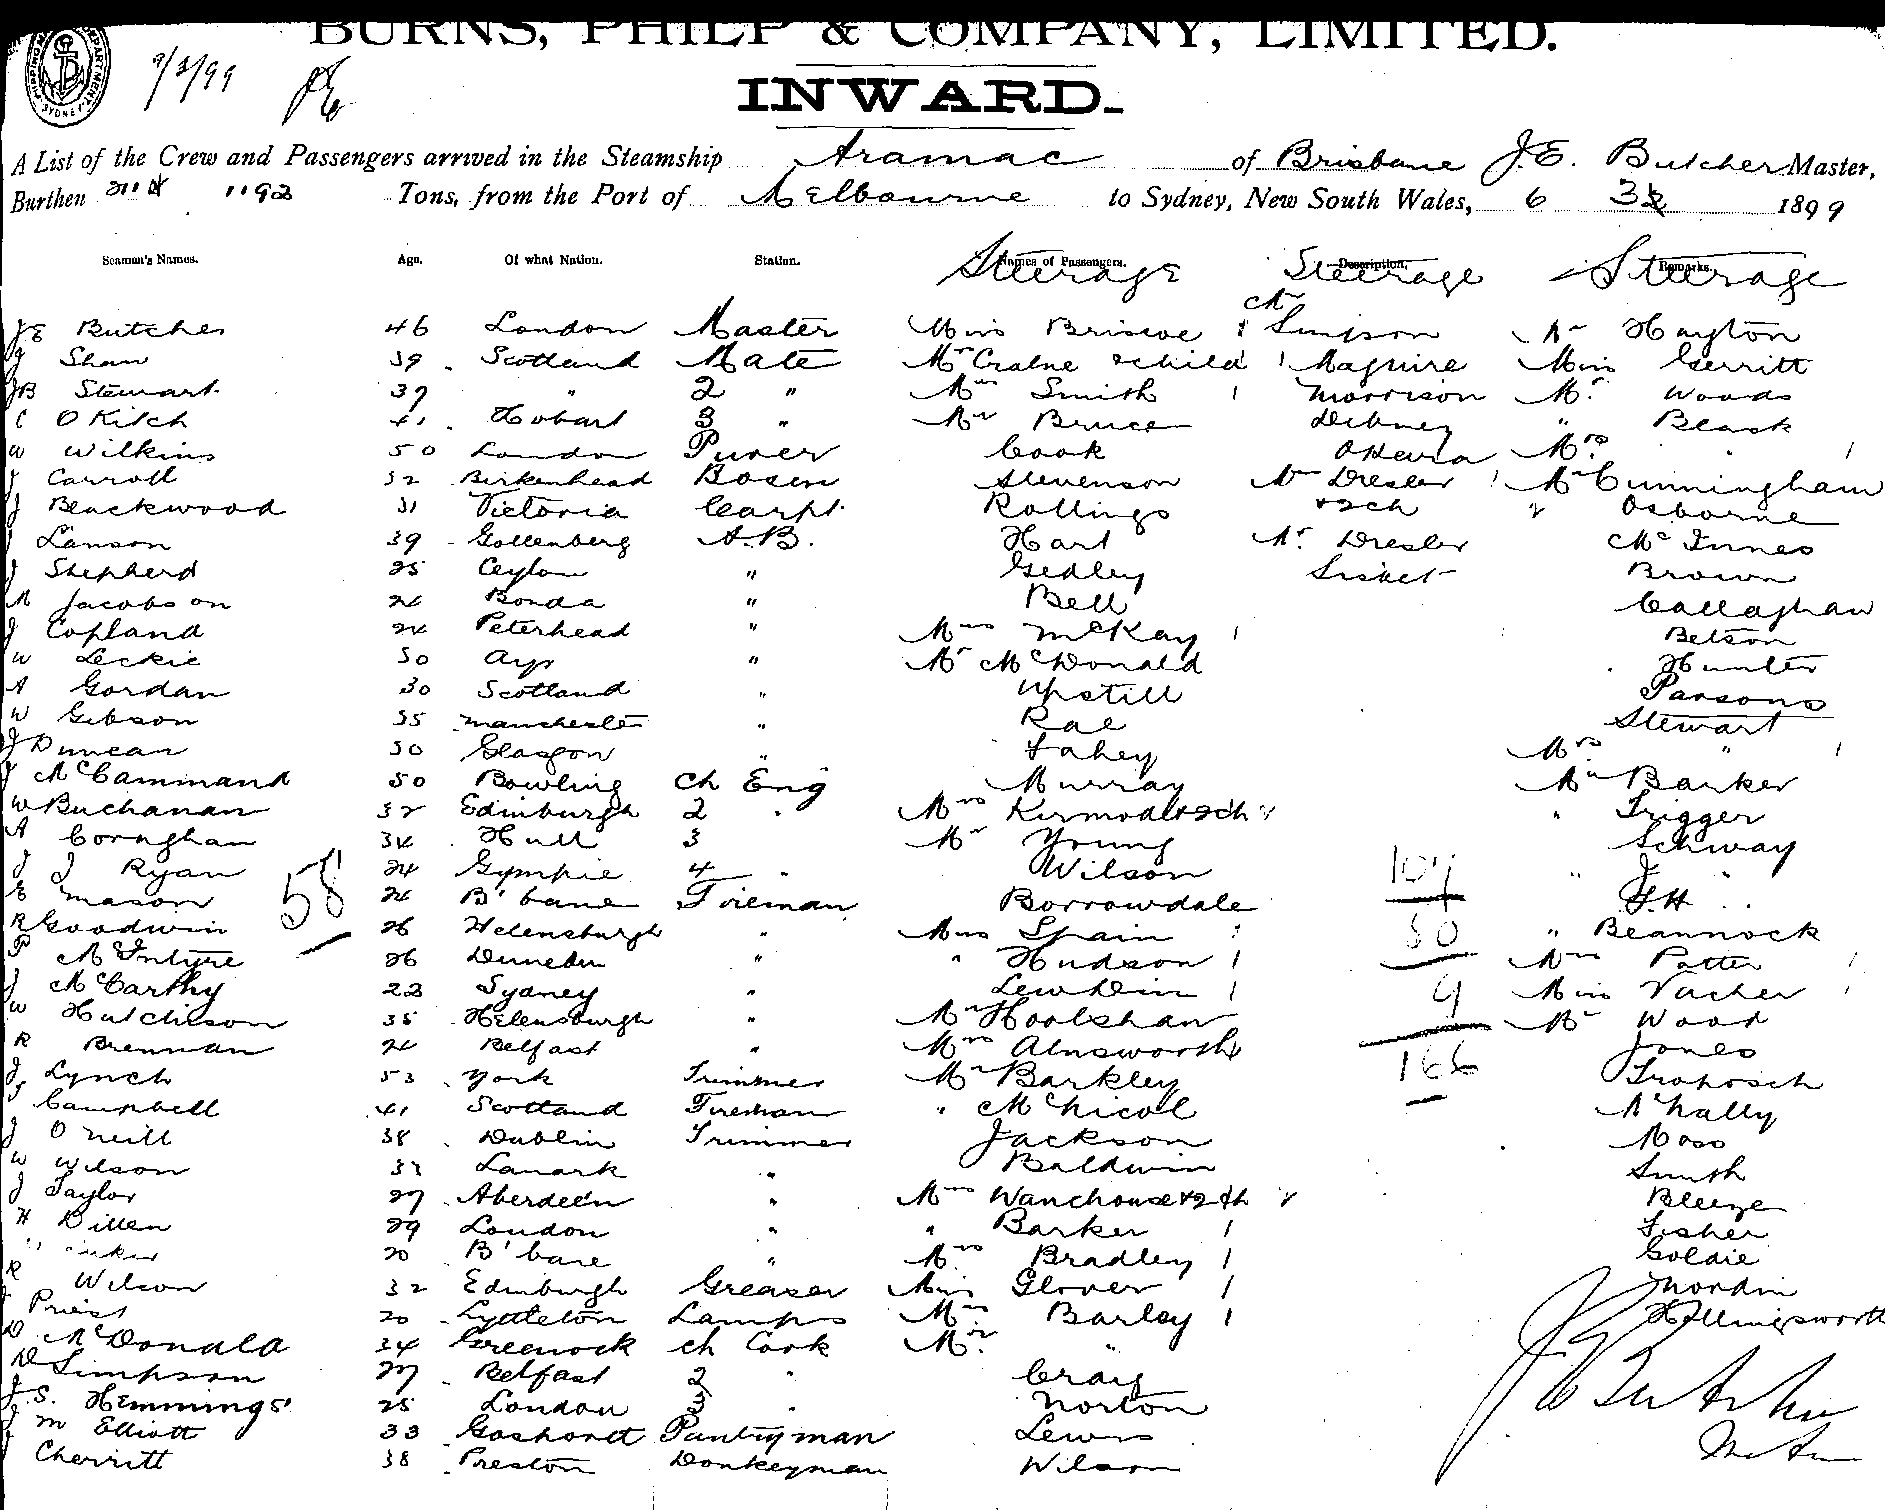 BURNS, PHILP & COMPANY, LIMITED.
9/3/99
INWARD.
A List of the Crew and Passengers arrived in the Steamship Aramac of Brisbane J.E. Butcher Master,
Burthen 2114 1192 Tons, from the Port of Melbourne to Sydney, New South Wales, 6 3 1899
Seamen's Names. Age. Of what Nation. Station. Names of Passengers. Description. Remarks.
Steerage Steerage Steerage
JE Butcher 46 London Master Miss Briscoe 1 Mr Simpson Mr Hayton
J Shaw 39 Scotland Mate Mr & child 1 Maguire Miss Gerritt
JB Stewart 37 " 2 " Mrs Smith 1 Morrison Mr. Woods
C O Kitch 41 Hobart 3 " Mr Bruce Dibney " Black
W Wilkins 50 London Purer Cook OKeira Mrs " 1
J Carroll 32 Birkenhead Bosen Stevenson Mrs Dresler 1 Mr Cunningham
J Blackwood 31 Victoria Carpt. Rollings & 2 ch 2 Osborne
J Lanson 39 Gottenberg A.B. Hart Mr. Dresler McInnes
J Shepherd 25 Ceylon " Gedley Sisket Brown
M Jacobson 24 Bonda " Bell Callaghan
J Copland 24 Peterhead " Mrs McKay 1 Betson
W Leckie 50 Ayr " Mr McDonald Hunter
A Gordan 30 Scotland " Upstill Parsons
W Gibson 35 Manchester " Rae Stewart
J Duncan 30 Glasgow " Fahey Mrs " 1
J McCammand 50 Bowling Ch Eng Murray Mr Barker
W Buchanan 32 Edinburgh 2 " Mrs Kirmode & 2 ch 2 " Trigger
A Cornghan 34 Hull 3 Mr Young Schway
J J Ryan 24 Gympie 4 " Wilson 107 " J "
E Mason 24 B'bane Fireman Borrowdale J.H "
58
R Goodwin 26 Helensburgh " Miss Spain 1 50 " Beannock
P McIntyre 26 Dunedin " " Hudson 1 Mrs Potter 1
J McCarthy 22 Sydney " 1 9 Miss Vacher 1
W Hutchison 35 Helensburgh " Mr Hoolshan Mr Wood
R Brennan 24 Belfast " Mrs Ainsworth Jones
J Lynch 53 York Trimmer Mr Barkley 166
J Campbell 41 Scotland Fireman " McNicol McNally
J O'Neill 38 Dublin Trimmer Jackson Moss
W Wilson 33 Lanark " Baldwin Smith
J Taylor 27 Aberdeen " Mrs Wanchouse & 2 ch 2 Bleeze
H Dillen 29 London " " Barker 1 Fisher
20 B'bane " Mrs Bradley 1 Goldie
R Wilson 32 Edinburgh Greaser Miss Glover 1 Nordin
J Priest 20 Lyttleton Lamps Mrs Barley 1 Hillingsworth
D McDonald 34 Greenock Ch Cook Mr. "
D Simpson 27 Belfast 2 " Craig
J.S. Hemmings 25 London 3 " Norton
J M Elliott 33 Pantryman Lewis
J Cherritt 38 Preston Donkeyman Wilson
JE Butcher
Master